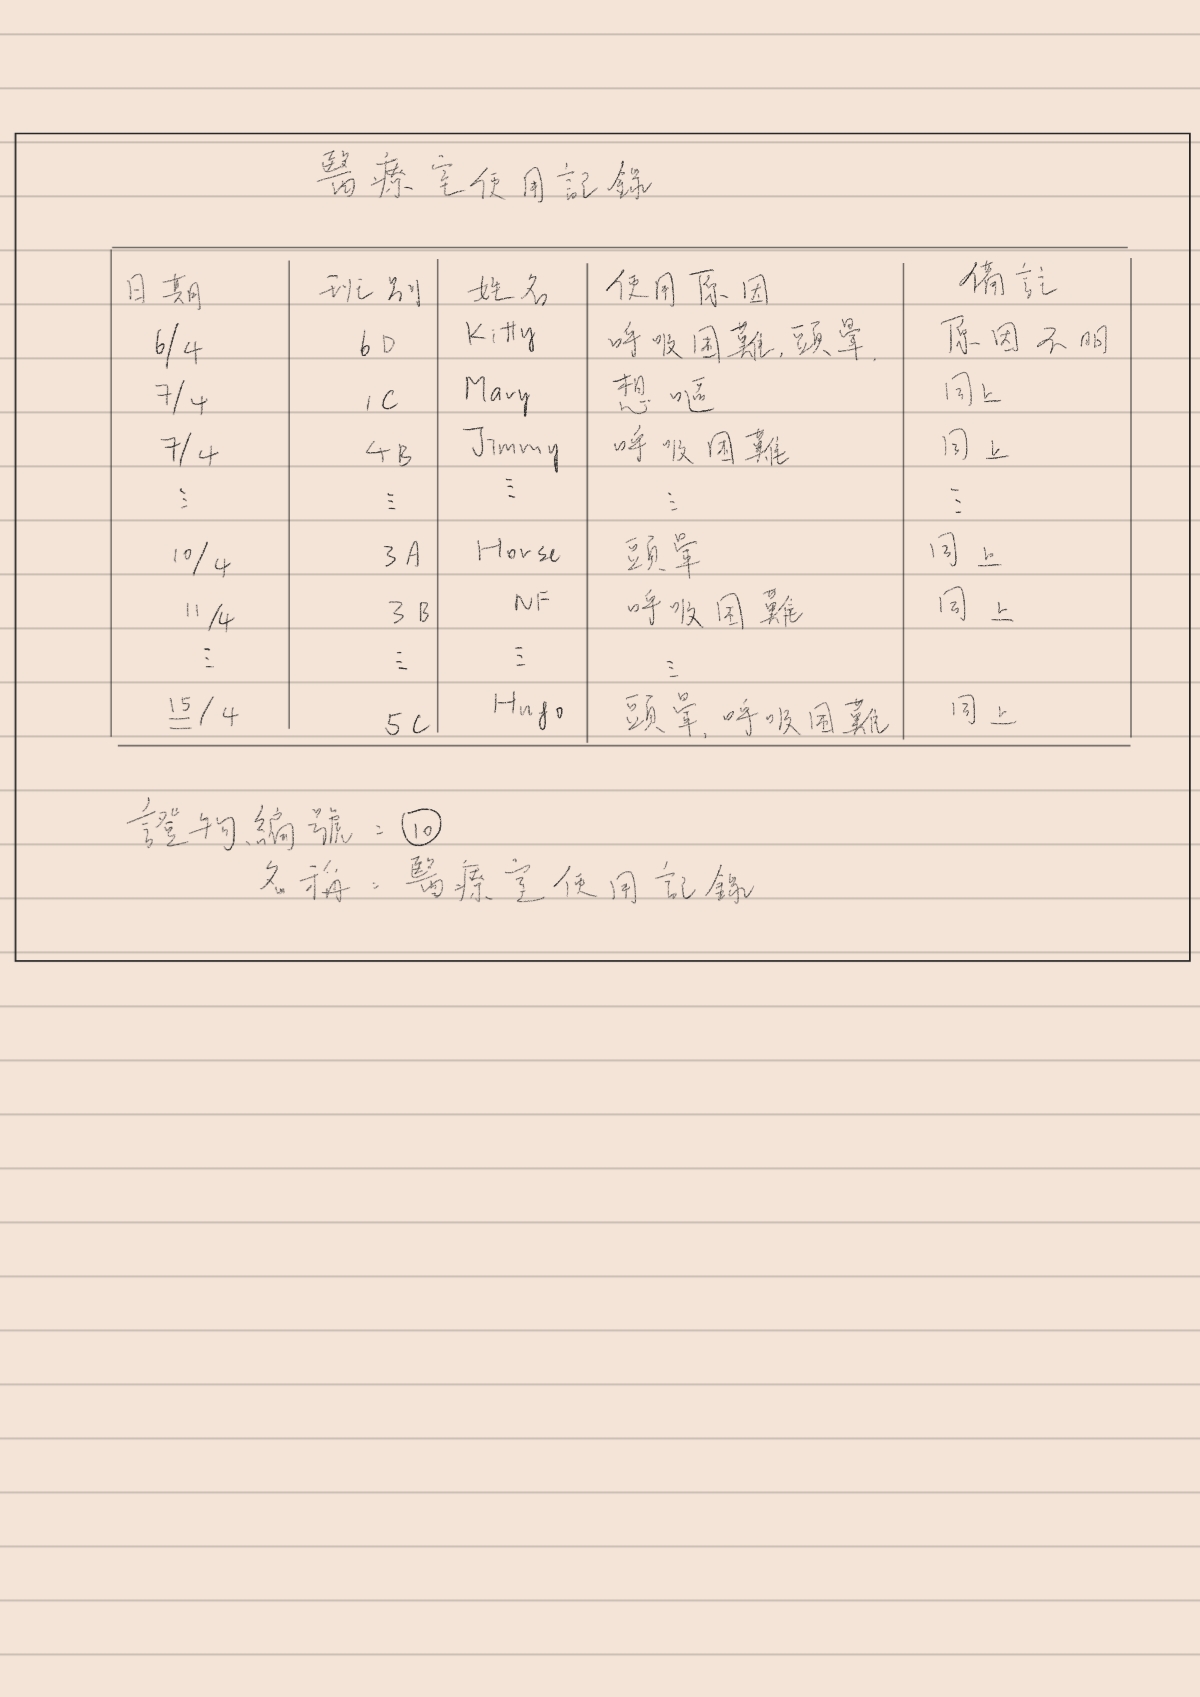 醫療室使用記錄
日期 班別 姓名 使用原因 備註
6/4 6D Kitty 呼吸困難,頭暈. 原因不明
7/4 1C Mary 想嘔 同上
7/4 4B Jimmy 呼吸困難 同上
⋮ ⋮ ⋮ ⋮ ⋮
10/4 3A Horse 頭暈 同上
11/4 3B NF 呼吸困難 同上
⋮ ⋮ ⋮ ⋮
15/4 5C Hugo 頭暈,呼吸困難 同上
證物編號:⑩
名稱:醫療室使用記錄